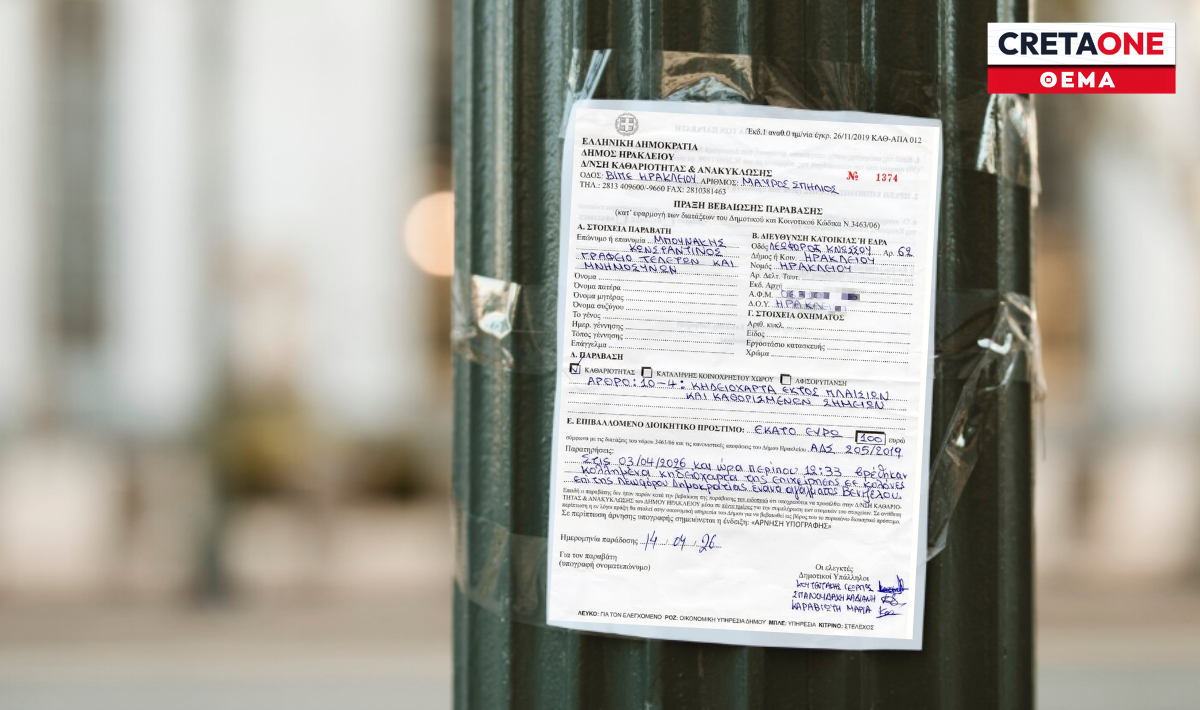 CRETAONE
ΘΕΜΑ
Έκδ.1 αναθ.0 ημ/νία έγκρ. 26/11/2019 ΚΑΘ-ΑΠΑ 012
ΕΛΛΗΝΙΚΗ ΔΗΜΟΚΡΑΤΙΑ
ΔΗΜΟΣ ΗΡΑΚΛΕΙΟΥ
Δ/ΝΣΗ ΚΑΘΑΡΙΟΤΗΤΑΣ & ΑΝΑΚΥΚΛΩΣΗΣ
ΟΔΟΣ: ΒΙΠΕ ΗΡΑΚΛΕΙΟΥ ΑΡΙΘΜΟΣ: ΜΑΥΡΟΣ ΣΠΗΛΙΟΣ
№ 1374
ΤΗΛ.: 2813 409600/-9660 FAX: 2810381463
ΠΡΑΞΗ ΒΕΒΑΙΩΣΗΣ ΠΑΡΑΒΑΣΗΣ
(κατ' εφαρμογή των διατάξεων του Δημοτικού και Κοινοτικού Κώδικα Ν.3463/06)
Α. ΣΤΟΙΧΕΙΑ ΠΑΡΑΒΑΤΗ
Επώνυμο ή επωνυμία ΜΠΟΥΝΑΚΗΣ
ΚΩΝΣΤΑΝΤΙΝΟΣ
ΓΡΑΦΕΙΟ ΤΕΛΕΤΩΝ ΚΑΙ
ΜΝΗΜΟΣΥΝΩΝ
Όνομα
Όνομα πατέρα
Όνομα μητέρας
Όνομα συζύγου
Το γένος
Ημερ. γέννησης
Τόπος γέννησης
Επάγγελμα
Β. ΔΙΕΥΘΥΝΣΗ ΚΑΤΟΙΚΙΑΣ Ή ΕΔΡΑ
Οδός ΛΕΩΦΟΡΟΣ ΚΝΩΣΣΟΥ Αρ. 62
Δήμος ή Κοιν. ΗΡΑΚΛΕΙΟΥ
Νομός ΗΡΑΚΛΕΙΟΥ
Αρ. Δελτ. Ταυτ.
Εκδ. Αρχή
Α.Φ.Μ.
Δ.Ο.Υ. ΗΡΑΚΛΕΙ
Γ. ΣΤΟΙΧΕΙΑ ΟΧΗΜΑΤΟΣ
Αριθ. κυκλ.
Είδος
Εργοστάσιο κατασκευής
Χρώμα
Δ. ΠΑΡΑΒΑΣΗ
ΚΑΘΑΡΙΟΤΗΤΑΣ ΚΑΤΑΛΗΨΗΣ ΚΟΙΝΟΧΡΗΣΤΟΥ ΧΩΡΟΥ ΑΦΙΣΟΡΥΠΑΝΣΗ
ΑΡΘΡΟ: 10-4: ΚΗΔΕΙΟΧΑΡΤΑ ΕΚΤΟΣ ΠΛΑΙΣΙΩΝ
ΚΑΙ ΚΑΘΟΡΙΣΜΕΝΩΝ ΣΗΜΕΙΩΝ
Ε. ΕΠΙΒΑΛΛΟΜΕΝΟ ΔΙΟΙΚΗΤΙΚΟ ΠΡΟΣΤΙΜΟ: ΕΚΑΤΟ ΕΥΡΩ 100 ευρώ
σύμφωνα με τις διατάξεις του νόμου 3463/06 και τις κανονιστικές αποφάσεις του Δήμου Ηρακλείου ΑΔΣ 205/2019
Παρατηρήσεις:
Στις 03/04/2026 και ώρα περίπου 12:33 βρέθηκαν
κολλημένα κηδειόχαρτα της επιχείρησης σε κολώνες
επί της Λεωφόρου Δημοκρατίας έναντι αγάλματος Βενιζέλου.
Σε περίπτωση άρνησης υπογραφής σημειώνεται η ένδειξη: «ΑΡΝΗΣΗ ΥΠΟΓΡΑΦΗΣ»
Ημερομηνία παράδοσης 14/04/26
Για τον παραβάτη
(υπογραφή ονοματεπώνυμο)
Οι ελεγκτές
Δημοτικοί Υπάλληλοι
ΓΕΩΡΓΙΟΣ
ΚΑΡΑΒΙΩΤΗ ΜΑΡΙΑ
ΛΕΥΚΟ: ΓΙΑ ΤΟΝ ΕΛΕΓΧΟΜΕΝΟ ΡΟΖ: ΟΙΚΟΝΟΜΙΚΗ ΥΠΗΡΕΣΙΑ ΔΗΜΟΥ ΜΠΛΕ: ΥΠΗΡΕΣΙΑ ΚΙΤΡΙΝΟ: ΣΤΕΛΕΧΟΣ